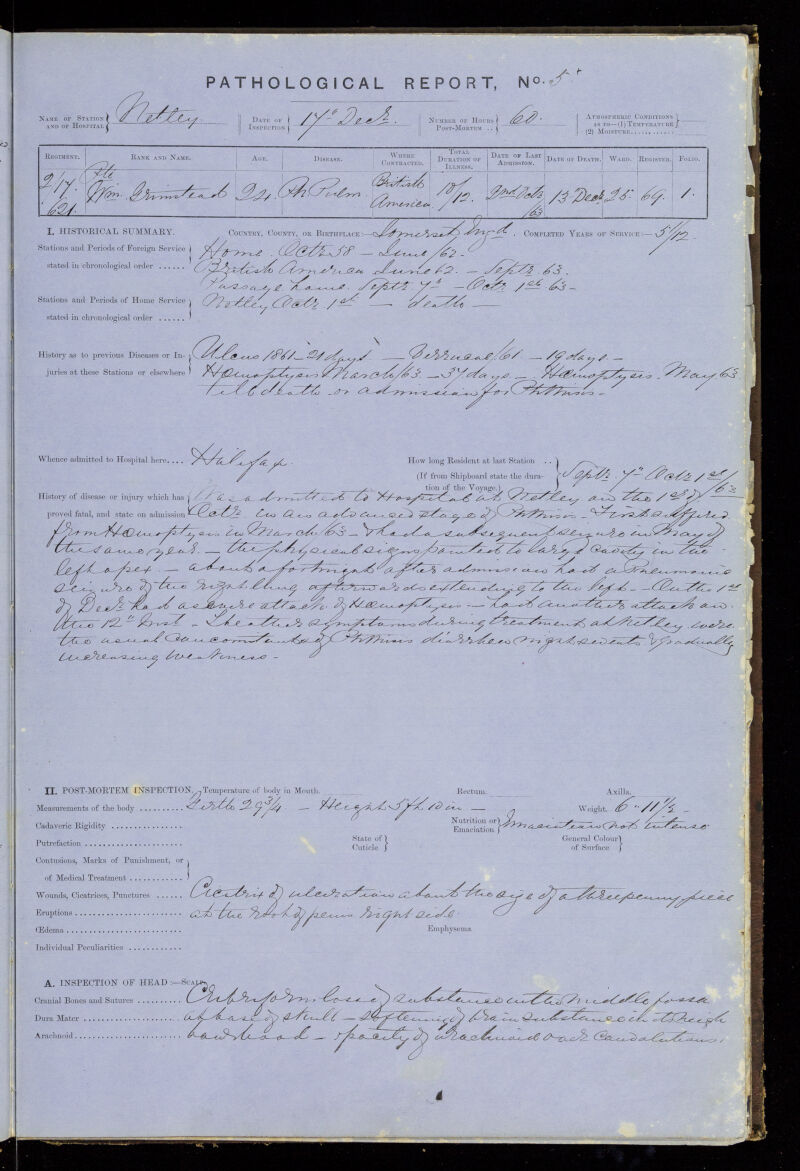 PATHOLOGICAL REPORT, No. 5
Name of Station and of Hospital Netley
Date of Inspection 17th Decr.
Number of Hours Post-Mortem .. 60.
Atmospheric Conditions as to—(1) Temperature (2) Moisture
Regiment. Rank and Name. Age. Disease. Where Contracted. Total Duration of Illness. Date of Last Admission. Date of Death. Ward. Register. Folio.
2/17. 621 Pte Wm. Grimstead 24 Ph Pulm. British America 10/12. 2nd Octr 63 13 Decr 25. 69. 1.
I. HISTORICAL SUMMARY. Country, County, or Birthplace:— Somerset Engd. Completed Years of Service:— 5 1/12
Stations and Periods of Foreign Service stated in chronological order ......
Home. Octr. 58 – June /62.
British America June 62. – Septr. 63.
Passage home Septr. 7th – Octr. 1st 63 –
Stations and Periods of Home Service stated in chronological order ......
Netley Octr. 1st – death –
History as to previous Diseases or Injuries at these Stations or elsewhere
Ulcus 1861 – 21 days – Verrucae /61 – 19 days –
Hæmoptysis March /63 – 37 days – Hæmoptysis. May 63
till death or admission for Phthisis –
Whence admitted to Hospital here.... Halifax.
How long Resident at last Station ..
(If from Shipboard state the duration of the Voyage.) Septr. 7th Octr 1st /63
History of disease or injury which has proved fatal, and state on admission
Was admitted to Hospital at Netley on the 1st of
Octr. in an advanced stage of Phthisis – First suffered
from Hæmoptysis in March /63 – & had a subsequent seizure in May of
the same year. – the physical signs pointed to large cavity in the
left apex – about a fortnight after admission had a Pneumonic
seizure of the right lung afterwards extending to the left – On the 1st
of Decr. had a severe attack of Hæmoptysis – had another attack on
the 12th Inst – The other symptoms during treatment at Netley were
the usual concomitants of Phthisis diarrhœa night sweats & gradually
increasing weakness –
II. POST-MORTEM INSPECTION. Temperature of body in Mouth. Rectum. Axilla.
Measurements of the body .......... Girth 29 3/4 – Height 5 ft 10 in – Weight.
Cadaveric Rigidity ................ Nutrition or Emaciation Emaciation not intense
Putrefaction ...................... State of Cuticle General Colour of Surface
Contusions, Marks of Punishment, or of Medical Treatment ............
Wounds, Cicatrices, Punctures ...... Cicatrix of ulceration about the size of a threepenny piece
Eruptions ........................ at the root of penis right side
Œdema .......................... Emphysema
Individual Peculiarities ............
A. INSPECTION OF HEAD:—Scalp,
Cranial Bones and Sutures .......... Cribriform loss of substance in the middle fossa
Dura Mater ...................... at base of skull – softening of brain substance in its neigh
Arachnoid ........................ bourhood – opacity of arachnoid over convolutions.